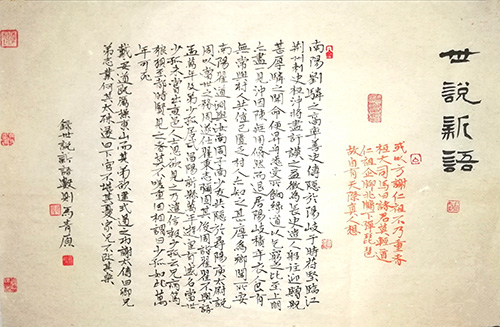 世說新語
或以方謝仁祖不乃重者
桓大司馬曰諸君莫輕道
仁祖企腳北窗下彈琵琶
故自有天際真人想
南陽劉驎之高率善史傳隱於陽岐于時苻堅臨江
荊州刺史桓沖將盡訏謨之益徵為長史遣人船往迎贈貺
甚厚驎之聞命便升舟悉不受所餉緣道以乞窮乏比至上明
亦盡一見沖因陳無用翛然而退居陽岐積年衣食有
無常與村人共值己匱乏村人亦如之甚厚為鄉閭所安
南陽翟道淵與汝南周子南少相友共隱于尋陽庾太尉說
周以當世之務周遂仕翟秉志彌固其後周詣翟翟不與語
孟萬年及弟少孤居武昌陽新縣萬年遊宦有盛名當世
少孤未嘗出京邑人士思欲見之乃遣信報少孤云兄病篤
狼狽至都時賢見之者莫不嗟重因相謂曰少孤如此萬
年可死
戴安道既厲操東山而其兄欲建式遏之功謝太傅曰卿兄
弟志業何其太殊戴曰下官不堪其憂家弟不改其樂
錄世說新語數則